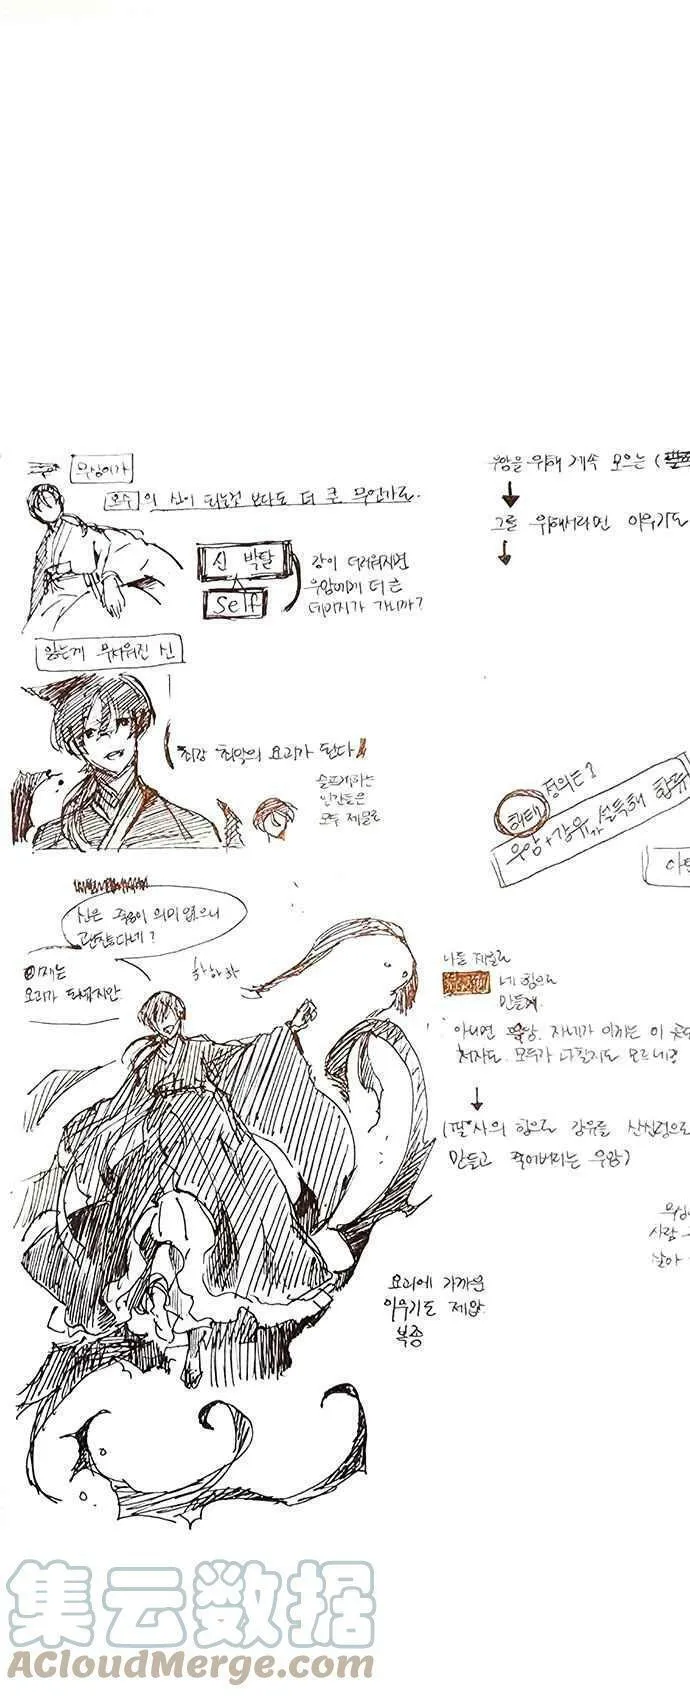 우상이가
의 신이 되는것 보다도 더 큰 무언가로.
신 박탈
Self
강이 더러워지면
우암에게 더 큰
데미지가 가니까?
잃는게 무서워진 신
최강 최악의 요괴가 된다
슬프게하는
인간들은
모두 제물로
신은 죽음이 의미 없으니
괜찮다네?
이제는
요괴가 되겠지만
하하하
우암을 위해 계속 모으는
그를 위해서라면 이무기도
해태
정의는?
우암+강유가 설득해 합류
너를 제물로
네 힘으로
만들게.
아니면 자네가 아끼는 이 곳도
모두가
(필사의 힘으로 강유를 산신령으로
만들고 죽어버리는 우암)
사람
살아
요괴에 가까운
이무기도 제압
복종
集云数据
ACloudMerge.com